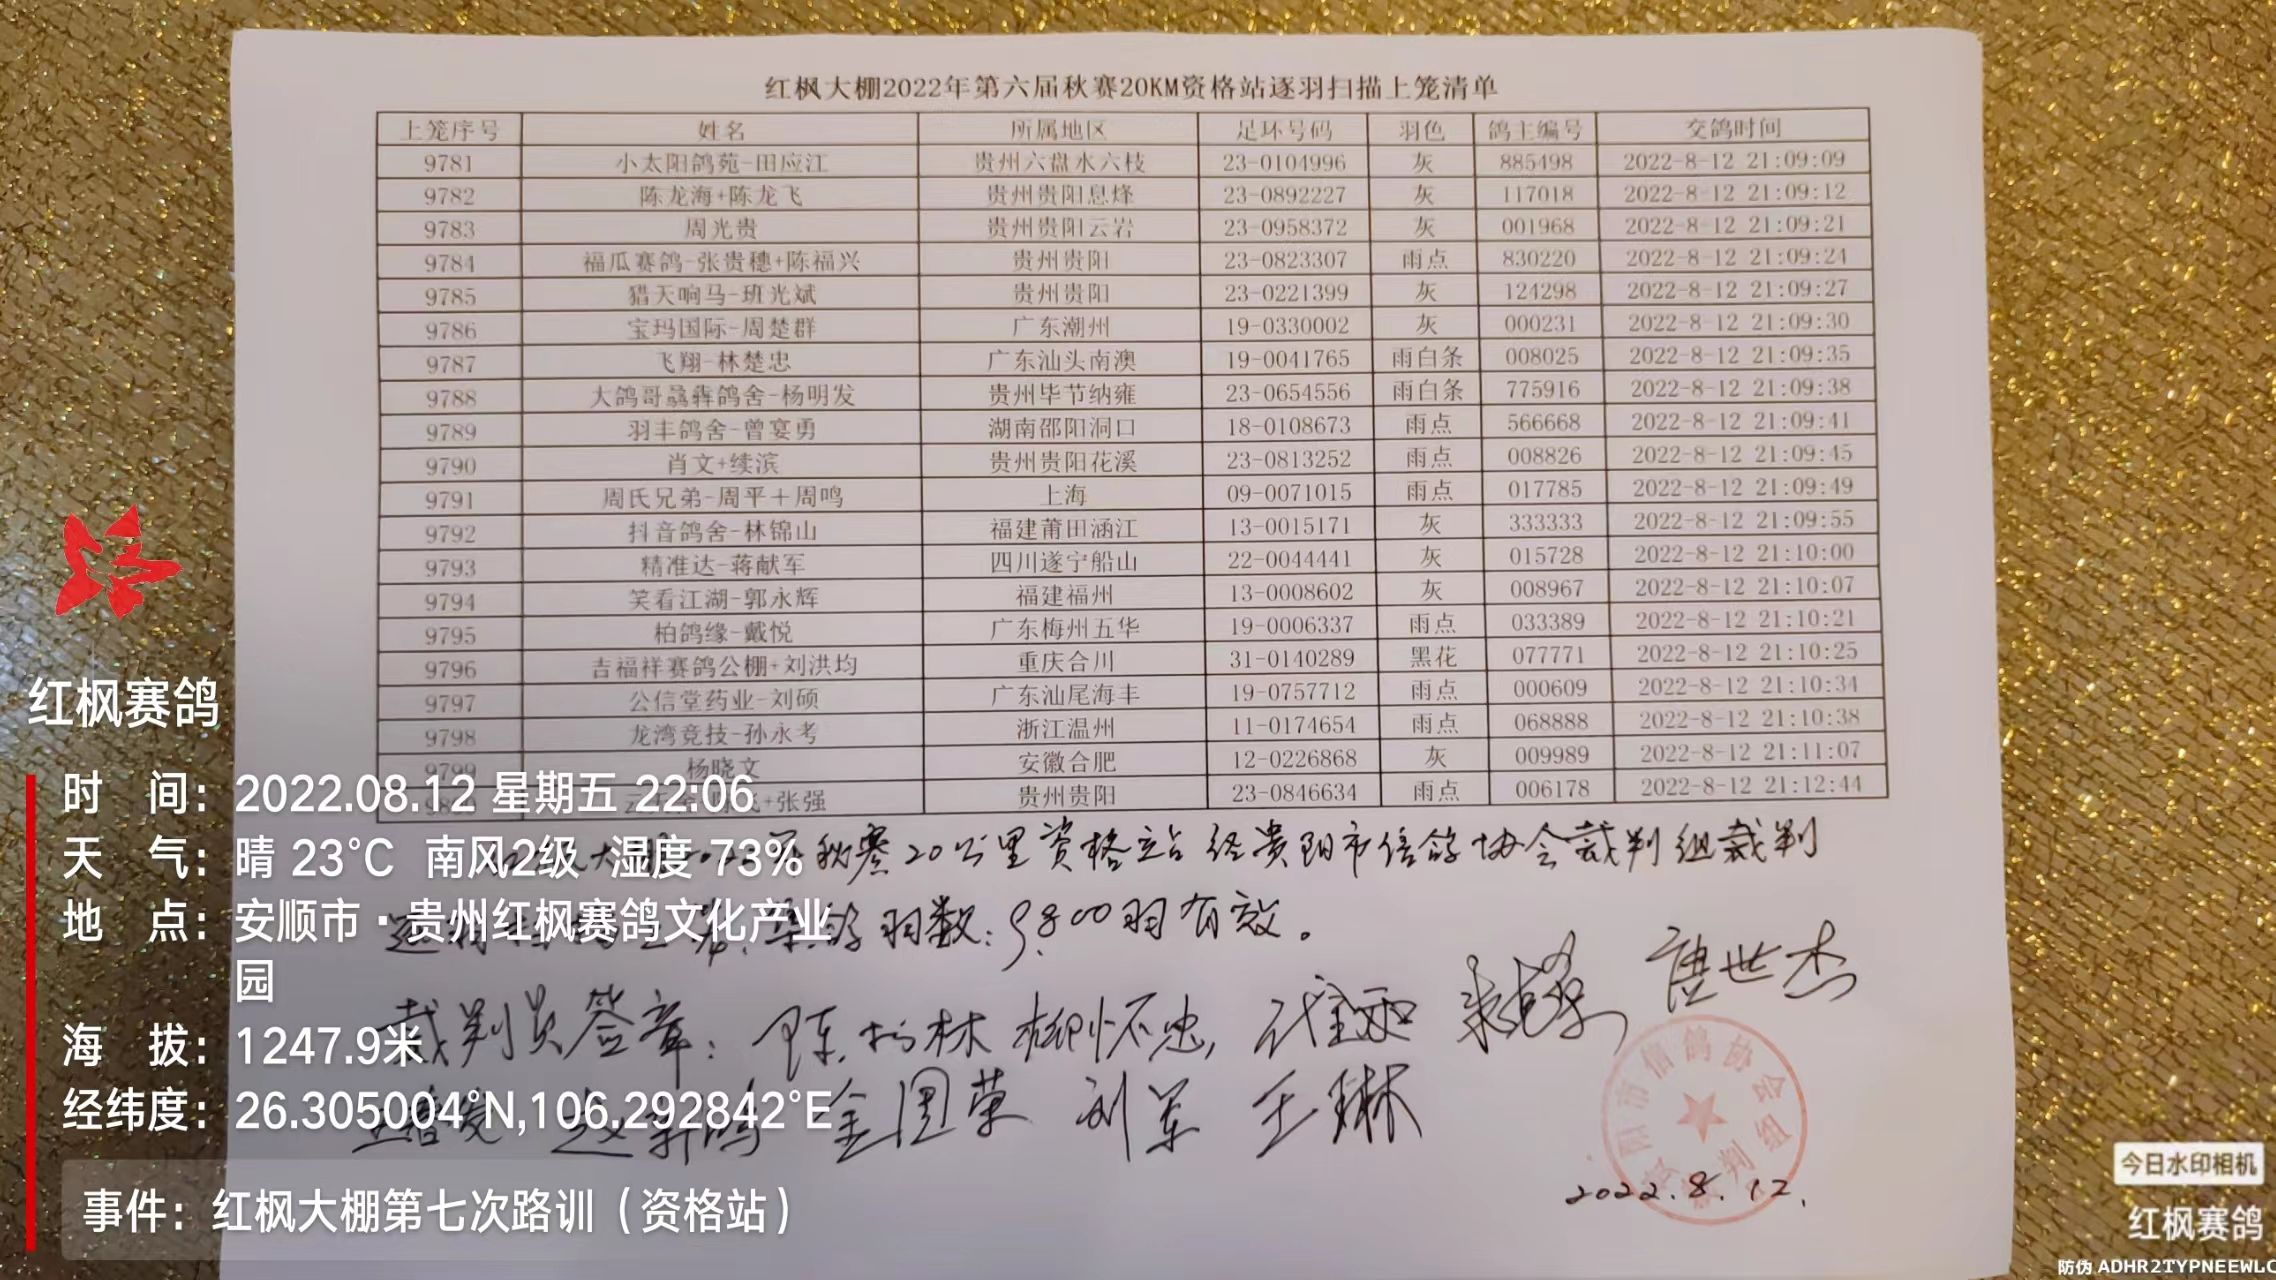 红枫大棚2022年第六届秋赛20KM资格站逐羽扫描上笼清单
上笼序号 姓名 所属地区 足环号码 羽色 鸽主编号 交鸽时间
9781 小太阳鸽苑-田应江 贵州六盘水六枝 23-0104996 灰 885498 2022-8-12 21:09:09
9782 陈龙海+陈龙飞 贵州贵阳息烽 23-0892227 灰 117018 2022-8-12 21:09:12
9783 周光贵 贵州贵阳云岩 23-0958372 灰 001968 2022-8-12 21:09:21
9784 福瓜赛鸽-张贵穗+陈福兴 贵州贵阳 23-0823307 雨点 830220 2022-8-12 21:09:24
9785 猎天响马-班光斌 贵州贵阳 23-0221399 灰 124298 2022-8-12 21:09:27
9786 宝玛国际-周楚群 广东潮州 19-0330002 灰 000231 2022-8-12 21:09:30
9787 飞翔-林楚忠 广东汕头南澳 19-0041765 雨白条 008025 2022-8-12 21:09:35
9788 大鸽哥骉犇鸽舍-杨明发 贵州毕节纳雍 23-0654556 雨白条 775916 2022-8-12 21:09:38
9789 羽丰鸽舍-曾宴勇 湖南邵阳洞口 18-0108673 雨点 566668 2022-8-12 21:09:41
9790 肖文+续滨 贵州贵阳花溪 23-0813252 雨点 008826 2022-8-12 21:09:45
9791 周氏兄弟-周平＋周鸣 上海 09-0071015 雨点 017785 2022-8-12 21:09:49
9792 抖音鸽舍-林锦山 福建莆田涵江 13-0015171 灰 333333 2022-8-12 21:09:55
9793 精准达-蒋献军 四川遂宁船山 22-0044441 灰 015728 2022-8-12 21:10:00
9794 笑看江湖-郭永辉 福建福州 13-0008602 灰 008967 2022-8-12 21:10:07
9795 柏鸽缘-戴悦 广东梅州五华 19-0006337 雨点 033389 2022-8-12 21:10:21
9796 吉福祥赛鸽公棚+刘洪均 重庆合川 31-0140289 黑花 077771 2022-8-12 21:10:25
9797 公信堂药业-刘硕 广东汕尾海丰 19-0757712 雨点 000609 2022-8-12 21:10:34
9798 龙湾竞技-孙永考 浙江温州 11-0174654 雨点 068888 2022-8-12 21:10:38
9799 杨晓文 安徽合肥 12-0226868 灰 009989 2022-8-12 21:11:07
+张强 贵州贵阳 23-0846634 雨点 006178 2022-8-12 21:12:44
秋赛20公里资格站经贵阳市信鸽协会裁判组裁判
羽数:9800羽有效。
裁判员签章: 柳怀忠, 唐世杰
金国荣 刘军 王琳
市信鸽协会
裁判组
2022.8.12.
红枫赛鸽
时 间：2022.08.12 星期五 22:06
天 气：晴 23℃ 南风2级 湿度 73%
地 点：安顺市·贵州红枫赛鸽文化产业
园
海 拔：1247.9米
经纬度：26.305004°N,106.292842°E
事件：红枫大棚第七次路训（资格站）
今日水印相机
红枫赛鸽
防伪 ADHR2TYPNEEWLC